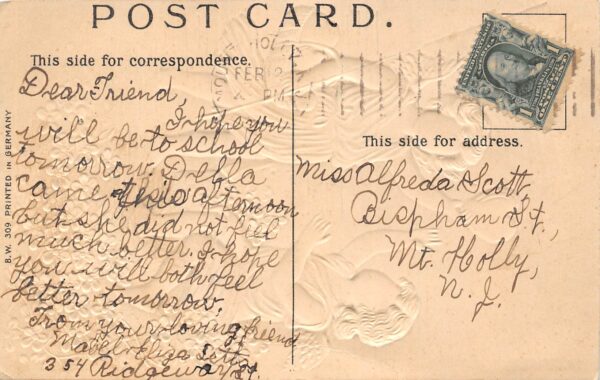 POST CARD.
This side for correspondence.
Dear Friend,
I hope you
will be to school
tomorrow. Della
came this afternoon
but she did not feel
much better. I hope
you will both feel
better tomorrow.
From your loving friend
Mabel Eliza
354 Ridgeway St.
B. W. 309 PRINTED IN GERMANY
FEB 12
PM
1
This side for address.
Miss Alfreda Scott,
Bispham St.,
Mt. Holly,
N. J.